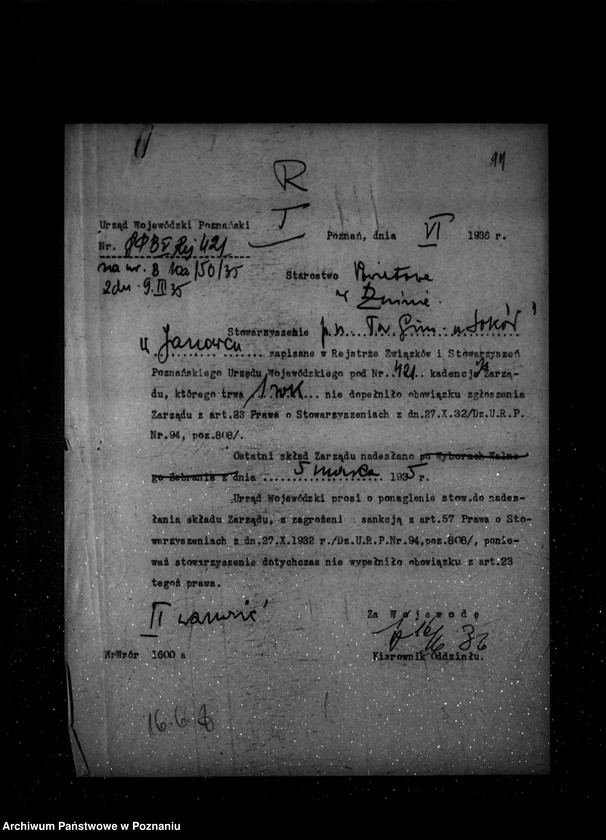 11
R
T
Urząd Wojewódzki Poznański
Nr. Rej 421
Poznań, dnia VI 1936 r.
na nr. B 50/35
z dn. 9.III 35
Starostwo Powiatowe
w Żninie
Stowarzyszenie p.n. Tow. Gim. "Sokół"
w Janowcu zapisane w Rejstrze Związków i Stowarzyszeń
Poznańskiego Urzędu Wojewódzkiego pod Nr. 421.. kadencja Zarzą-
du, którego trwa 1 rok... nie dopełniło obowiązku zgłoszenia
Zarządu z art.23 Prawa o Stowarzyszeniach z dn.27.X.32/Dz.U.R.P.
Nr.94, poz.808/.
Ostatni skład Zarządu nadesłano po Wyborach Walne
go Zebrania z dnia 5 marca 1935 r.
Urząd Wojewódzki prosi o ponaglenie stow.do nades-
łania składu Zarządu, z zagrożeni sankcją z art.57 Prawa o Sto-
warzyszeniach z dn.27.X.1932 r./Dz.U.R.P.Nr.94,poz.808/, ponie-
waż stowarzyszenie dotychczas nie wypełniło obowiązku z art.23
tegoż prawa.
Za Wojewodę
16/6 36
Kierownik Oddziału.
NrWzór 1600 a
16.6
Archiwum Państwowe w Poznaniu